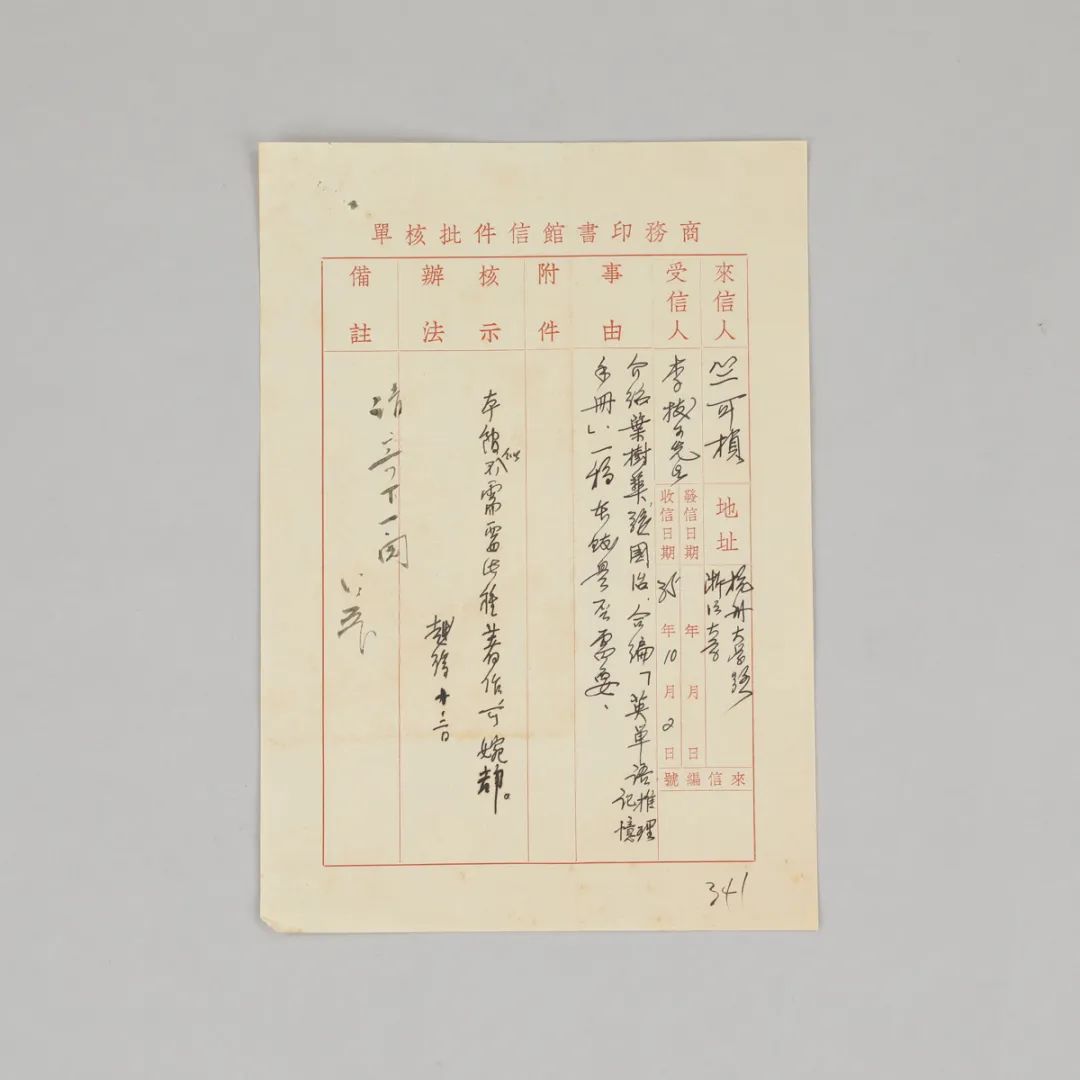 商務印書館信件批核單
來信人
竺可楨
地址
杭州大學路
浙江大學
受信人
李拔可先生
發信日期
年 月 日
收信日期
35年10月2日
來信編號
事由
介紹葉樹華、張國治、合編「英單語推理記憶
手冊」、一稿本館是否需要、
附件
核示辦法
本館似不需要此種著作、可婉却。
十、三
備註
請
341